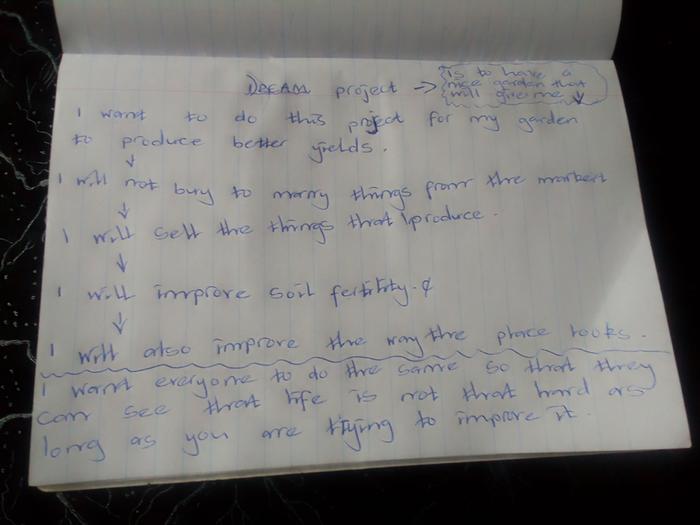 DREAM project → is to have a
nice garden that
will give me ↓
I want to do this project for my garden
to produce better yields.
↓
I will not buy to many things from the market
↓
I will sell the things that I produce.
↓
I will improve soil fertility. ¢
↓
I will also improve the way the place looks.
I want everyone to do the same so that they
can see that life is not that hard as
long as you are trying to improve it.